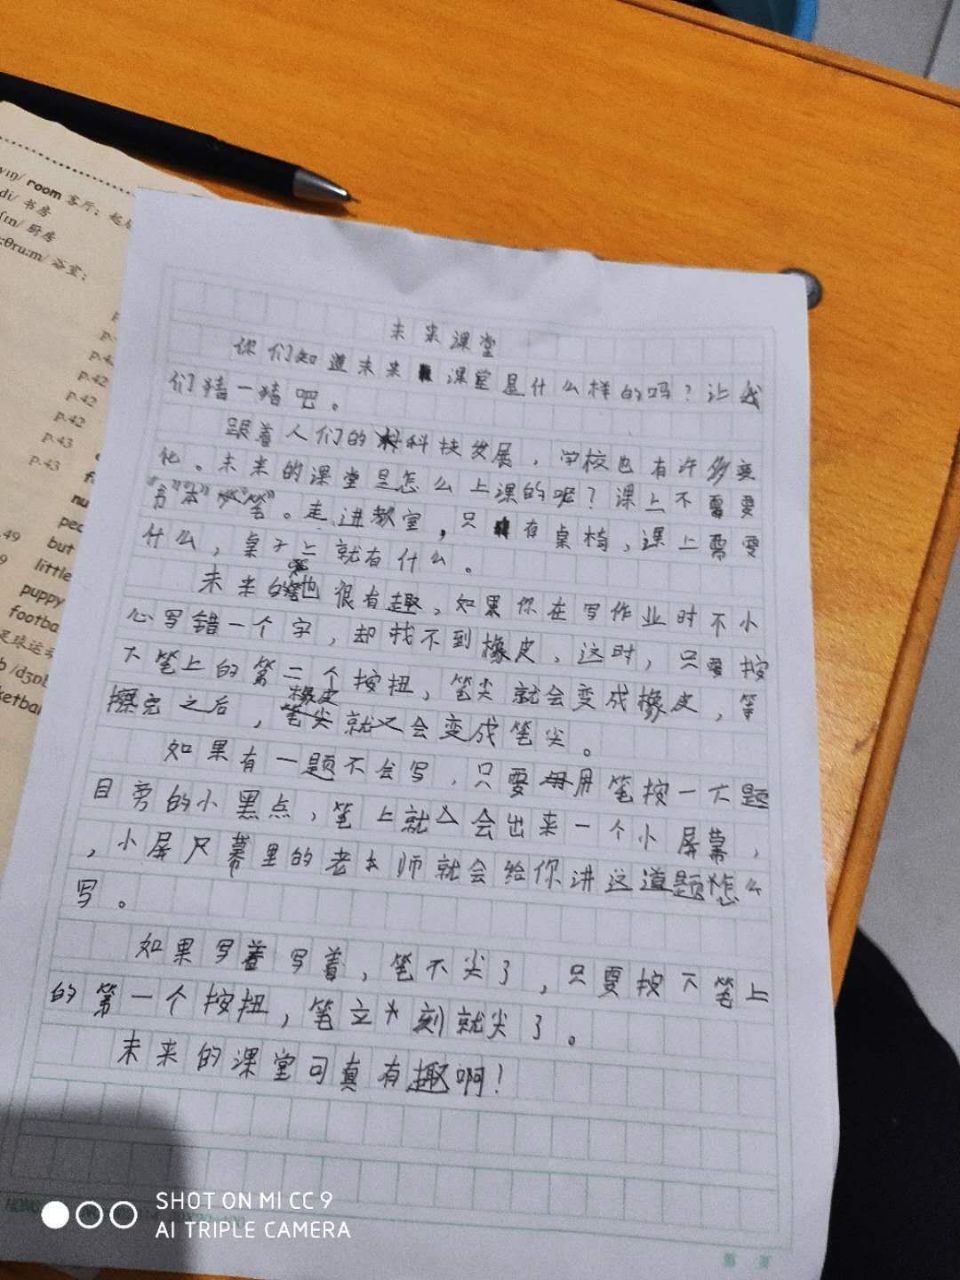 yɪŋ/ room 客厅；起居
di/ 书房
ʃɪn/ 厨房
:θru:m/ 浴室；
p.42
p.42
p.42
p.43
p.43
.49
but
9
little
puppy
footba
足球运动
b /dʒɒb
ketbal
未来课堂
你们知道未来课堂是什么样的吗？让我
们猜一猜吧。
跟着人们的科技发展，学校也有许多变
化。未来的课堂是怎么上课的呢？课上不需要
“书”“本”“笔”。走进教室，只有桌椅，课上需要
什么，桌子上就有什么。
未来的笔也很有趣，如果你在写作业时不小
心写错一个字，却找不到橡皮，这时，只要按
下笔上的第二个按扭，笔尖就会变成橡皮，等
擦完之后，橡皮就又会变成笔尖。
如果有一题不会写，只要用笔按一下题
目旁的小黑点，笔上就会出来一个小屏幕，
，小屏幕里的老师就会给你讲这道题怎么
写。
如果写着写着，笔不尖了，只要按下笔上
的第一个按扭，笔立刻就尖了。
未来的课堂可真有趣啊！
SHOT ON MI CC 9
AI TRIPLE CAMERA
第 页